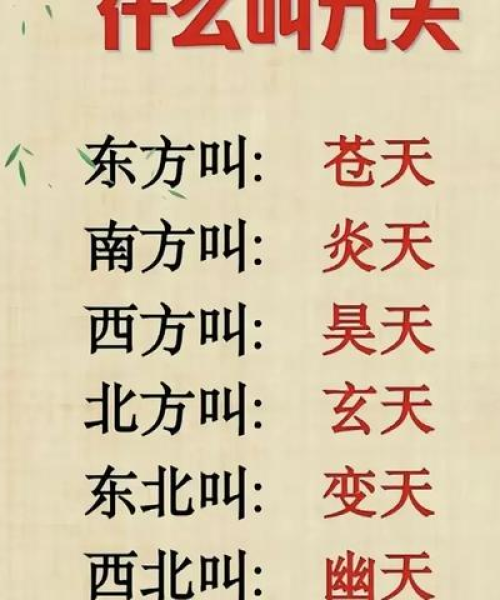 什么叫九天
东方叫: 苍天
南方叫: 炎天
西方叫: 昊天
北方叫: 玄天
东北叫: 变天
西北叫: 幽天